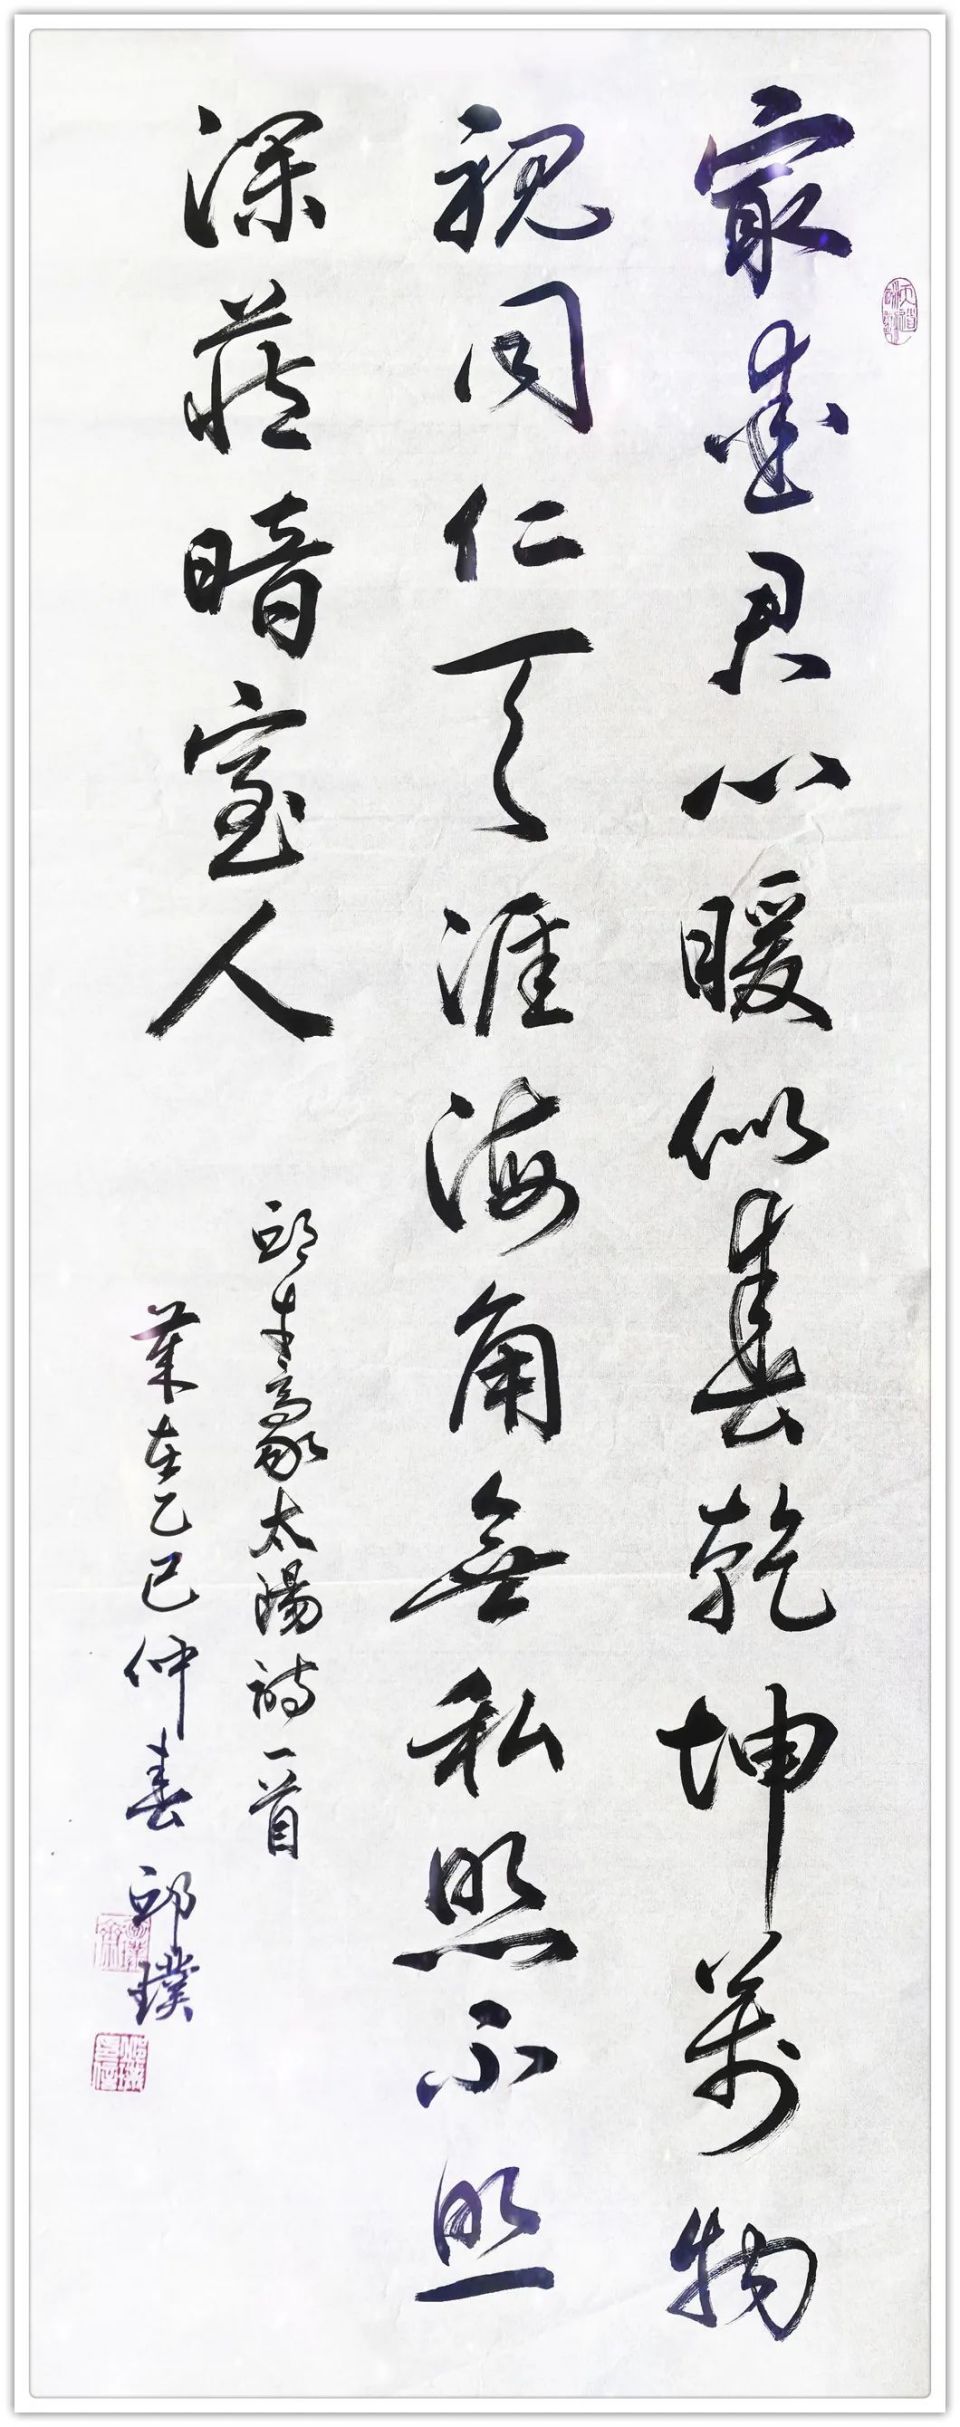 最愛君心暖似春乾坤萬物
視同仁天涯海角無私照不照
深藏暗室人
邱孝豪太陽詩一首
歲在乙巳仲春邱璞